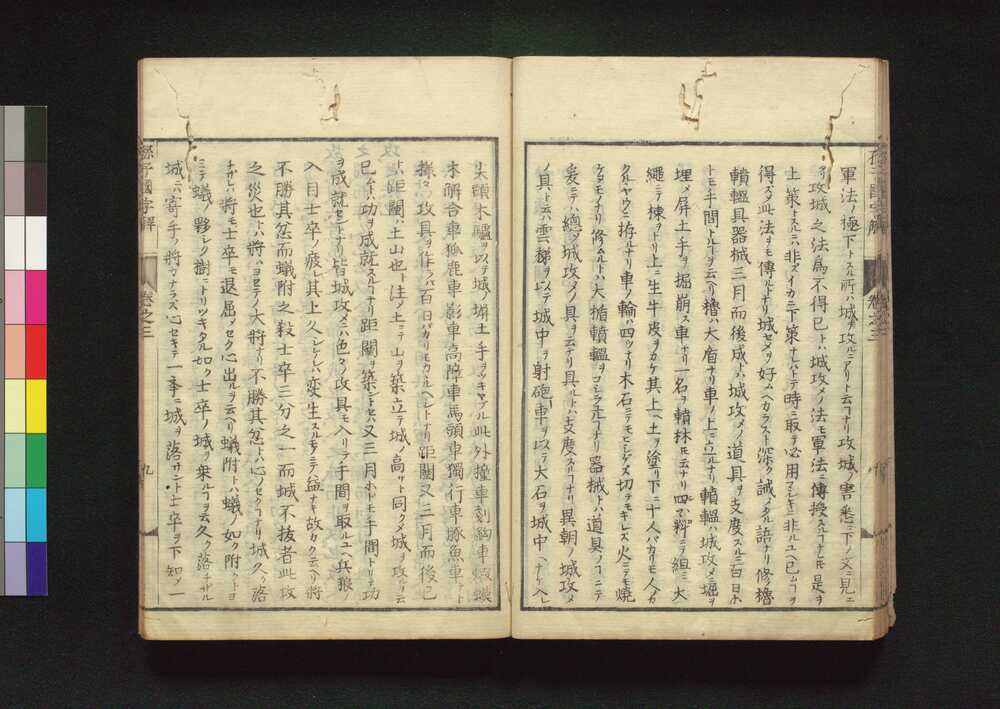 軍法ノ極下トスル所ハ城ヲ攻ルニアリト云フナリ攻城ノ害悉ク下ノ文ニ見ユ
攻城之法為不得已トハ城攻メノ法モ軍法ニ傳授スルフナレモ是ヲ
上策トスルニハ非ズイカニ下策ナレバトテ時ニ取テ必用マシキニ非ルユヘ已ムフヲ
得ズメ此法ヲモ傳ルナリ城セメヲ好ムヘカラスト深ク誡メタル語ナリ修櫓
轒轀具器械三月而後成トハ城攻メノ道具ヲ支度スルニ三百日ホ
トモ手間トルフヲ云ヘリ櫓ハ大盾ナリ車ノ上ニ立ルナリ轒轀ハ城攻メニ堀ヲ
埋メ屏土手ヲ掘崩ス車ナリ一名ヲ轒牀モ云ナリ四ツ
繩ニテ棟ヲトリ上ニ生牛皮ヲカケ其上ヘ土ヲ塗リ下ニ十人バカリモ人ノカ
クルヤウニ拵ルナリ車ノ輪ハ四ツナリ木石ニテモヒシゲズ切テモキレズ火ニテモ燒
ケヌモノナリ修ムルトハ大楯轒轀ヲコシラユルフナリ器械トハ道具ノフニテ
爰ニテハ總ノ城攻メノ具ヲ云ナリ具ルトハ支度スルフナリ異朝ノ城攻メ
ノ具ト云ハ雲梯ヲ以テ城中ヲ射砲車ヲ以テ大石ヲ城中ヘナケヘレ
尖頭木驢ヲ以テ城ノ塀土手ヲツキヤブル此外撞車刻鈎車蝦蟆
木解合車狐鹿車彰車高障車馬頭車獨行車豚魚車ト
樣々ノ攻具ヲ作ラバ百日バカリモカヽルヘシトナリ距闉又三月而後已
トハ距闉ハ土山也ト注ノ土ニテ山ヲ築立テ城ノ高サト同クメ城ヲ攻ルヲ云
已ムトハ功ヲ成就スルフナリ距闉ヲ築ントセバ又三月ホトモ手間トリテ功
ヲ成就セントナリ皆城攻メニハ色々ノ攻具モ入リテ手間ヲ取ルユヘ兵粮ノ
入目士卒ノ疲レ其上久シケレバ変生スルモノニテ益ナキ故カク云ヘリ將
不勝其忿而蟻附之殺士卒三分之一而城不拔者此攻
之災也トハ將ハヨセテノ大將ナリ不勝其忿トハ心ノセクフナリ城久ク落
チザレバ將モ士卒モ退屈メセク心出ルヲ云ヘリ蟻附トハ蟻ノ如ク附
ニテ蟻ノ夥シク樹ニトリツキタル如ク士卒ノ城ヘ乗ルフヲ云久ク落チザル
城ニハ寄手ノ將カナラズ心セキテ一季ニ城ヲ落サント士卒ヲ下知メ一
孫子國字解
卷之三
九